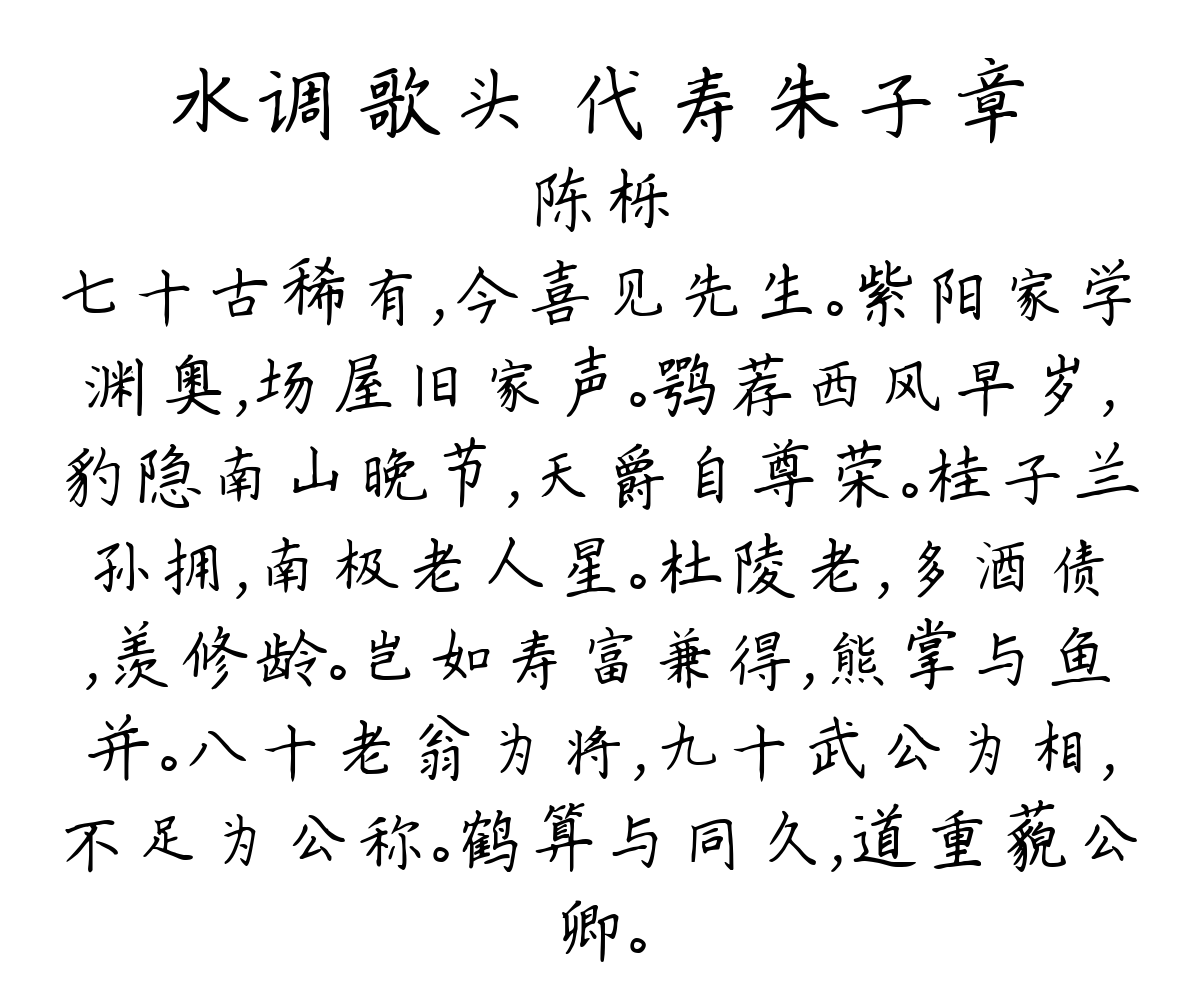 水调歌头 代寿朱子章
陈栎
七十古稀有,今喜见先生。紫阳家学
渊奥,场屋旧家声。鹗荐西风早岁,
豹隐南山晚节,天爵自尊荣。桂子兰
孙拥,南极老人星。杜陵老,多酒债
,羡修龄。岂如寿富兼得,熊掌与鱼
并。八十老翁为将,九十武公为相,
不足为公称。鹤算与同久,道重藐公
卿。